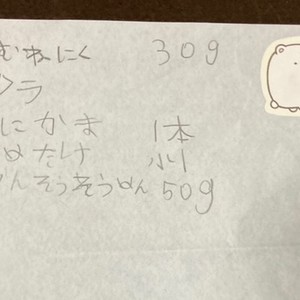 むねにく 30g
クラ
にかま 1本
めたけ 小1
んそうそうめん 50g